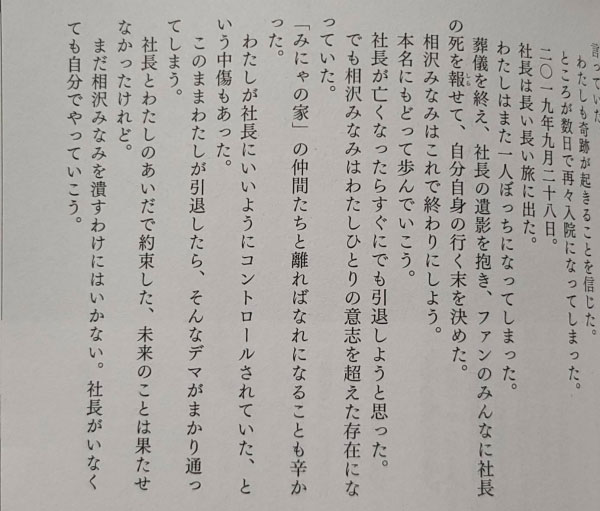 言っていた。
わたしも奇跡が起きることを信じた。
ところが数日で再々入院になってしまった。
二〇一九年九月二十八日。
社長は長い長い旅に出た。
わたしはまた一人ぼっちになってしまった。
葬儀を終え、社長の遺影を抱き、ファンのみんなに社長
の死を報せて、自分自身の行く末を決めた。
相沢みなみはこれで終わりにしよう。
本名にもどって歩んでいこう。
社長が亡くなったらすぐにでも引退しようと思った。
でも相沢みなみはわたしひとりの意志を超えた存在にな
っていた。
「みにゃの家」の仲間たちと離ればなれになることも辛か
った。
わたしが社長にいいようにコントロールされていた、と
いう中傷もあった。
このままわたしが引退したら、そんなデマがまかり通っ
てしまう。
社長とわたしのあいだで約束した、未来のことは果たせ
なかったけれど。
まだ相沢みなみを潰すわけにはいかない。社長がいなく
ても自分でやっていこう。